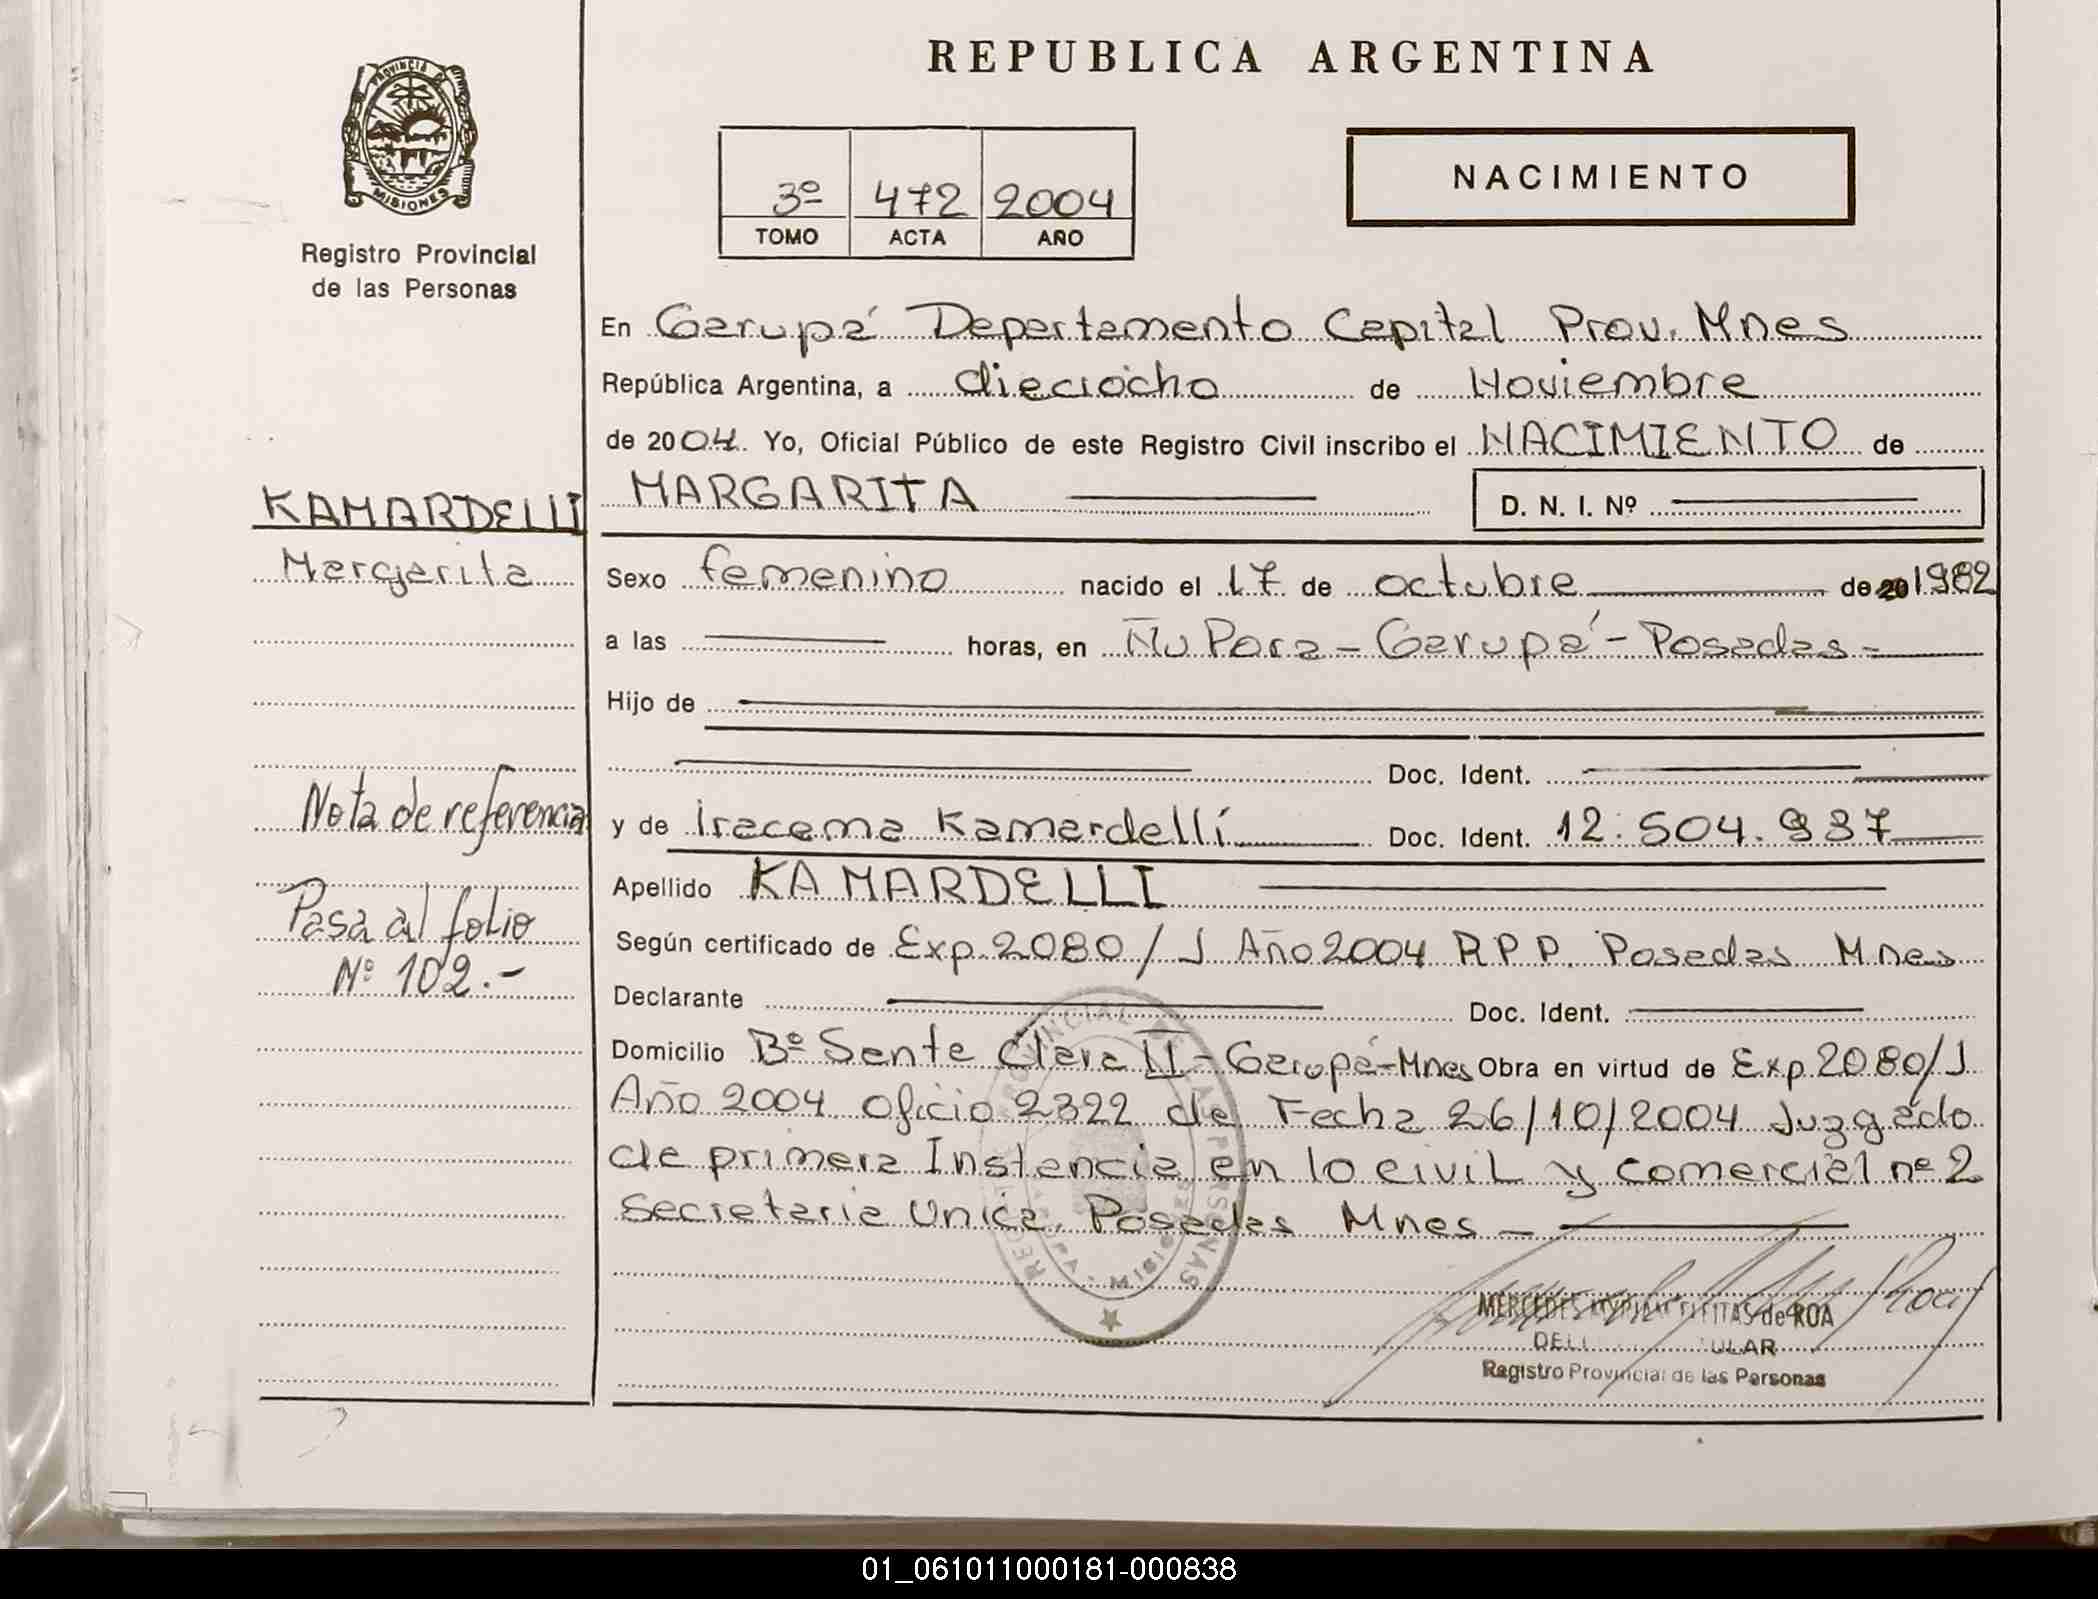 REPUBLICA ARGENTINA
PROVINCIA DE
MISIONES
Registro Provincial
de las Personas
3º 472 2004
TOMO ACTA AÑO
NACIMIENTO
En Garupá Departamento Capital Prov. Mnes
República Argentina, a dieciocho de Noviembre
de 2004. Yo, Oficial Público de este Registro Civil inscribo el NACIMIENTO de
MARGARITA D. N. I. Nº
KAMARDELLI
Margarita
Sexo femenino nacido el 17 de octubre de 20 1982
a las horas, en Ñu Pora - Garupá - Posadas -
Hijo de
Doc. Ident.
Nota de referencia
y de Iracema Kamardelli Doc. Ident. 12.504.937
Apellido KAMARDELLI
Pasa al folio
Nº 102.-
Según certificado de Exp. 2080/J Año 2004 R.P.P. Posadas Mnes
Declarante Doc. Ident.
Domicilio Bº Santa Clara II - Garupá - Mnes Obra en virtud de Exp. 2080/J
Año 2004 oficio 2322 de Fecha 26/10/2004 Juzgado
de primera Instancia en lo civil y comercial nº 2
Secretaria Unica. Posadas Mnes -
MERCEDES de ROA
Registro Provincial de las Personas
01_061011000181-000838